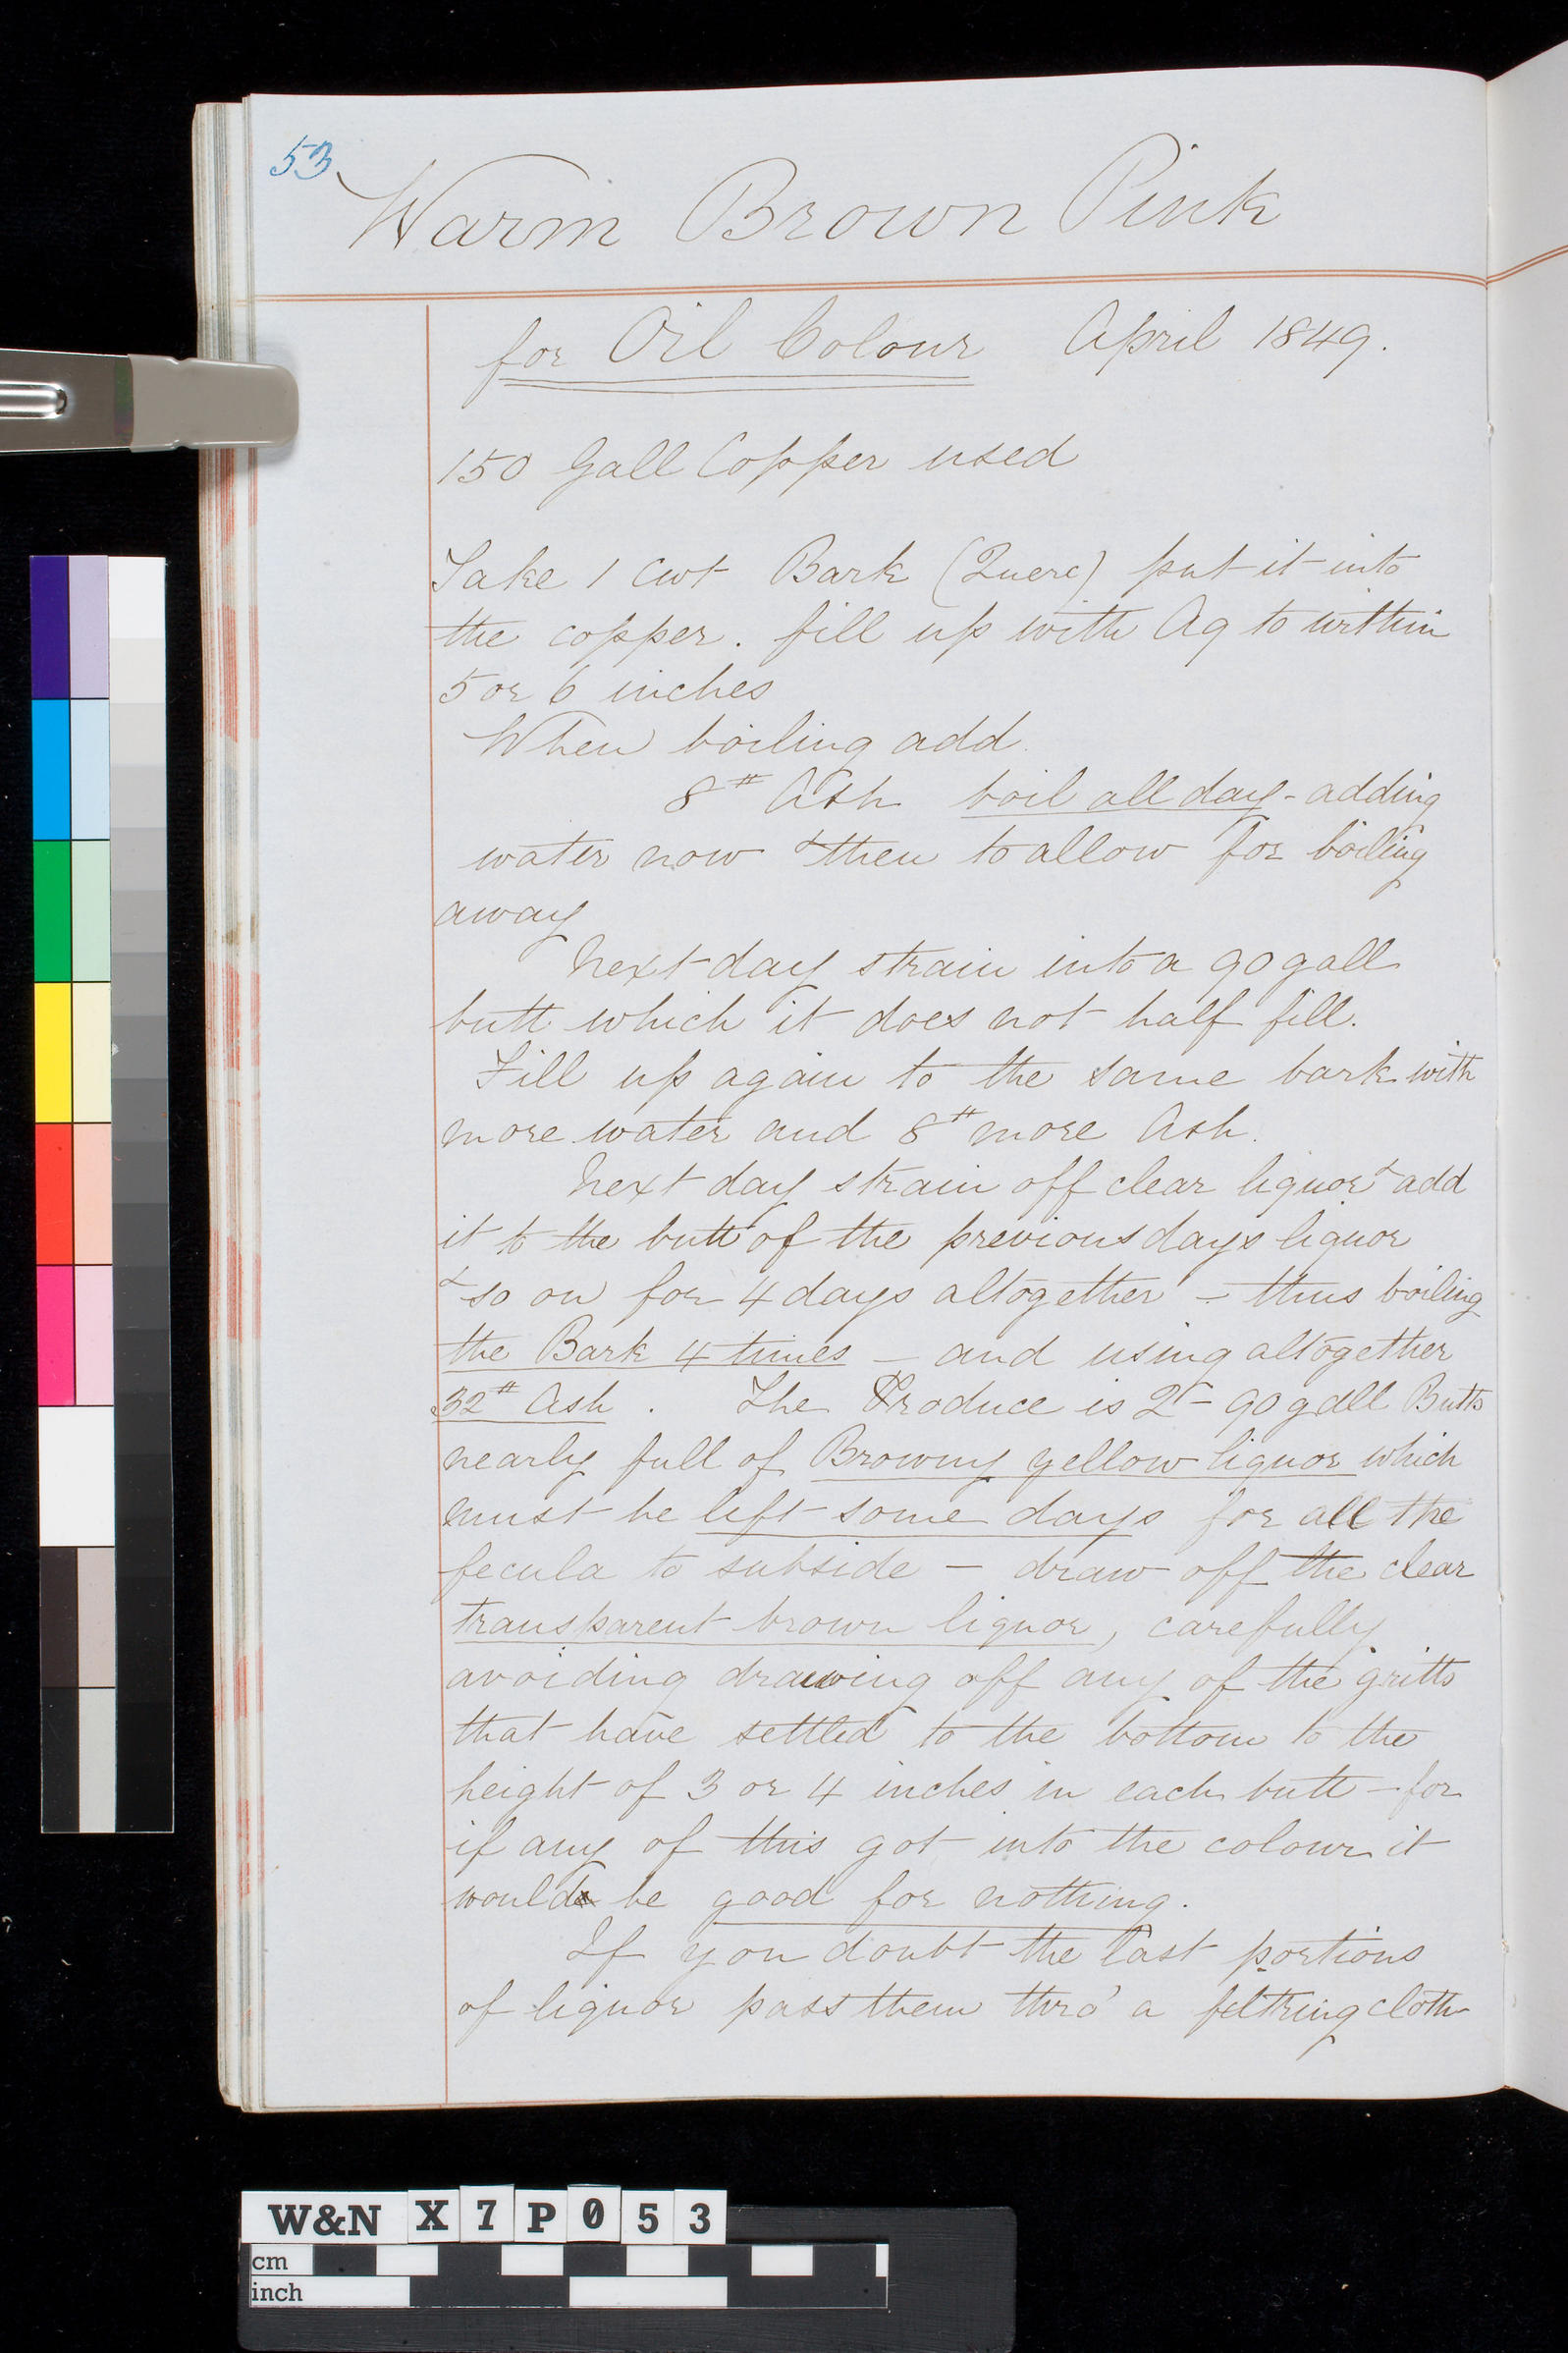 53
Warm Brown Pink
for Oil Colour April 1849.
150 Gall Copper used
Take 1 Cwt Bark (Querc) put it into
the copper. fill up with Aq to within
5 or 6 inches
When boiling add
8# Ash boil all day - adding
water now & then to allow for boiling
away
Next day strain into a 90 gall
butt which it does not half fill.
Fill up again to the same bark with
more water and 8# more Ash.
Next day strain off clear liquor & add
it to the butt of the previous days liquor
& so on for 4 days altogether - thus boiling
the Bark 4 times - and using altogether
32# Ash. The Produce is 2 - 90 gall Butts
nearly full of Browny yellow liquor which
must be left some days for all the
fecula to subside - draw off the clear
transparent brown liquor, carefully
avoiding drawing off any of the gritts
that have settled to the bottom to the
height of 3 or 4 inches in each butt - for
if any of this got into the colour it
would be good for nothing.
If you doubt the last portions
of liquor pass them thro' a filtring cloth
W&N X7P053
cm
inch